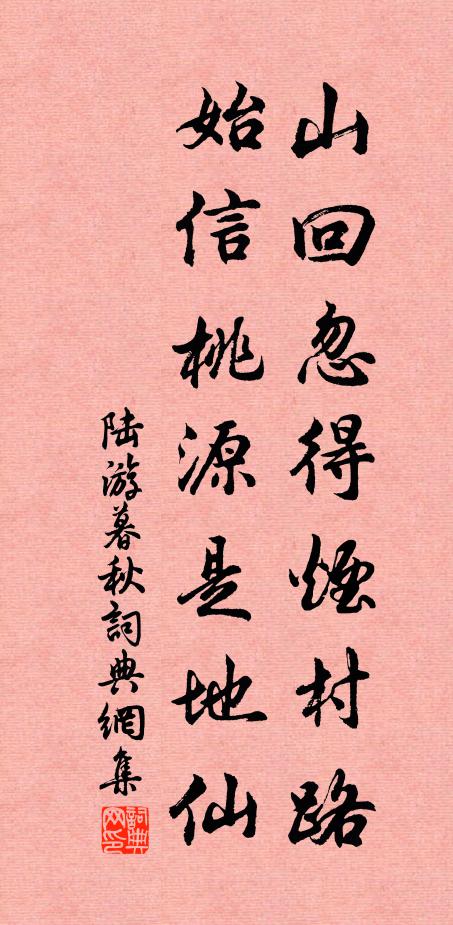 山回忽得煙村路
始信桃源是地仙
陆游暮秋詞典網集
詞典网印